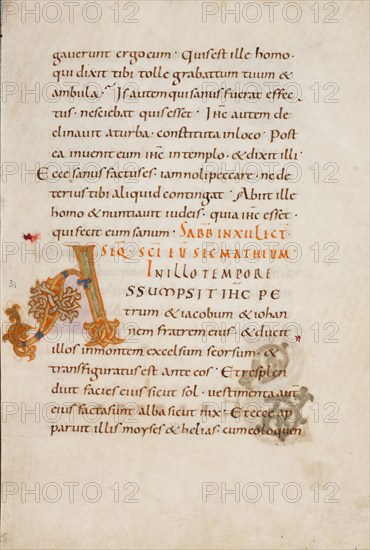 gaverunt ergo eum · Quis est ille homo ·
qui dixit tibi tolle grabattum tuum &
ambula · Is autem qui sanus fuerat effec
tus · nesciebat quis esset · IHC autem de
clinavit a turba · constituta in loco · Post
ea invenit eum IHC in templo · & dixit illi
Ecce sanus factus es · iam noli peccare · ne de
terius tibi aliquid contingat · Abiit ille
homo & nuntiavit iudeis · quia IHC esset ·
qui fecit eum sanum · SABB IN XII LECT
SEQ · SCI EV SEC MATHEUM
IN ILLO TEMPORE
ASSUMPSIT IHC PE
trum & iacobum & iohan
nem fratrem eius · & ducit
illos in montem excelsum seorsum · &
transfiguratus est ante eos · Et resplen
duit facies eius sicut sol · vestimenta aut
eius facta sunt alba sicut nix · Et ecce ap
paruit illis moyses & helias · cum eo loquen
PHOTO 12